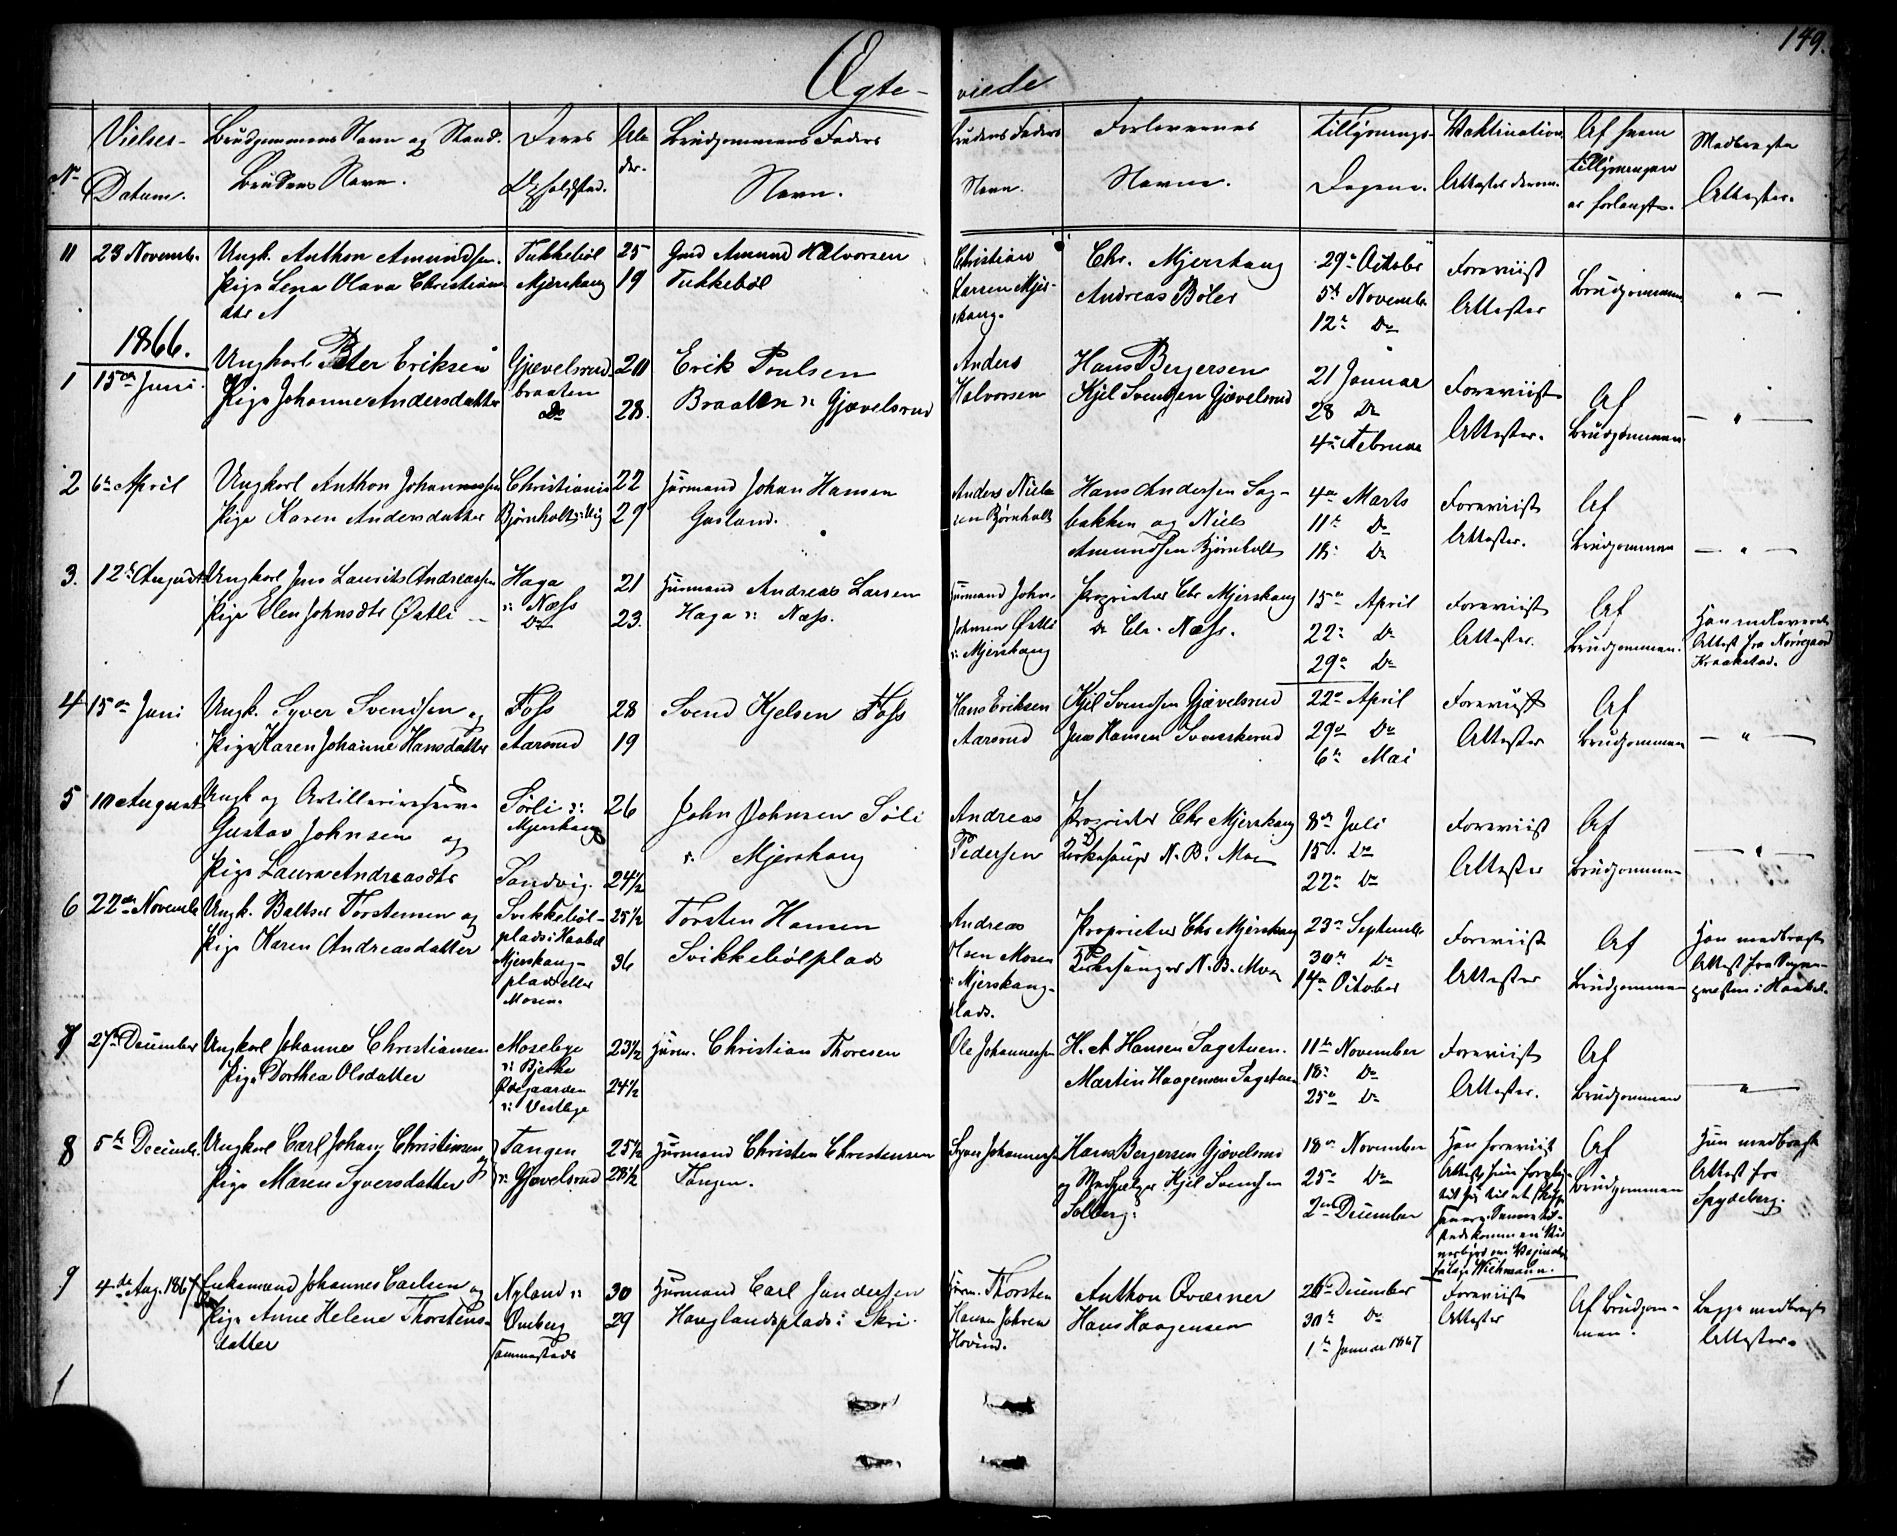 149.
Ægte-viede
No
Vielses-
Datum.
Brudgommens Navn og Stand.
Brudens Navn.
Deres
Opholdsted.
Al-
der.
Brudgommens Faders
Navn.
Brudens Faders
Navn.
Forlovernes
Navne.
Tillysnings-
Dagene.
Vaktination
Attester derom.
Af hvem
Tillysningen
er forlangt.
Medbragte
Attester.
11 23 Novemb. Ungk. Anthon Amundsen. Tukkebøl 25 Grd Amund Halvorsen
Pige Lena Olava Christians Mjerskaug 19 Tukkebøl
dtr
Christian
Larsen Mjer-
skaug.
Chr. Mjerskaug
Andreas Bøler
29 October
5te Novemb
12te Do
Foreviist
Attester
Brudgommen
" —
1866.
1 15de Juni
Ungkarl Peter Eriksen
Pige Johanne Andersdatter
Gjævelsrud-
braaten
Do
20
28.
Erik Poulsen
Braaten v: Gjævelsrud
Anders
Halvorsen
Hans Bergersen
Kjel Svendsen Gjævelsrud
21 Januar
28 Do
4de Februar
Foreviist
Attester.
Af
Brudgommen
— " —
2 6te April
Ungkarl Anthon Johannessen
Pige Karen Andersdatter
Christiania
Bjørnholt
22
29
Huusmand Johan Hansen
Anders Niel-
sen Bjørnholt
Hans Andersen Sag-
bakken og Niels
Amundsen Bjørnholt
4de Marts
11te Do
18 Do
Foreviist
Attester.
Af
Brudgommen
— " —
3. 12te August
Ungkarl Jens Laurits Andreassen
Pige Elen Johnsdtr Østli
Haga
v: Næss
Do
21
23.
Huusmand Andreas Larsen
Haga v: Næss.
Huusmand John
Johnsen Østli
v: Mjerskaug
Proprietær Chr Mjerskaug
Do Chr. Næss.
15de April
22 Do
29de Do
Foreviist
Attester.
Af
Brudgommen.
Attest fra
Kraakstad.
4 15de Juni
Ungk. Syver Svendsen og
Pige Karen Johanne Hansdatter
Foss
Aarsrud
28
19
Svend Kjelsen Foss
Hans Eriksen
Aarsrud
Kjel Svendsen Gjævelsrud
Jens Hansen
22de April
29de Do
6te Mai
Foreviist
Attester
Af
Brudgommen
— " —
5 10 August
Ungk og
Gustav Johnsen og
Pige Laura Andreasdtr
Sørli v:
Mjerskaug
Sandvig.
26
24½
John Johnsen Søli
v. Mjerskaug
Andreas
Pedersen
Proprietær Chr Mjerskaug
Kirkesanger N. B. Moe
8de Juli
15. Do
22de Do
Foreviist
Attester
Af
Brudgommen
— " —
6 22de Novemb
Ungk. Baltser Torstensen og
Pige Karen Andreasdatter
Svikkebøl-
plads i Haabøl
Mjerskaug-
plads eller
Mosen.
25½
36
Torsten Hansen
Svikkebølplads
Andreas
Olsen Mosen
v: Mjerskaug-
plads.
Proprietær Chr Mjerskaug
Kirkesanger N. B. Moe
23de Septemb
30te Do
14de October
Foreviist
Attester
Af
Brudgommen
Han medbragte
Attest fra Sogne-
presten i Haabøl.
7 27de December
Ungkarl Johannes Christiansen
Pige Dorthea Olsdatter
Bjerke
v: Vestbye
23½
24½
Huusm. Christian Thoresen
Ole Johannessen
H. A Hansen Sagstuen.
Martin Haagensen Sagstuen
11te November
18 Do
25de Do
Foreviist
Attester.
Af
Brudgommen
— " —
8 5te Decemb.
Ungkarl Carl Johan Christensen og
Pige Maren Syversdatter
Tangen
v: Gjævelsrud
25½
28½
Huusmand Christen Christensen
Tangen.
Syver Johannessen
Hans Bergersen Gjævelsrud
og Kjel Svendsen
Solberg.
18de November
25de Do
2den December
Han foreviist
Attest,
Af
Brudgommen
Hun medbragte
Attest fra
Spydeberg.
9 4de Aug. 1867
Enkemand Johannes Carlsen og
Pige Anne Helene Thorstens-
datter
Nyland v:
Omberg
sammesteds
30
29
Huusmand Carl Gundersen
Hauglandsplads i Skri.
Huusm. Thorsten
Hansen
Hovind.
Anthon Overner
Hans Haagensen
26de December
30te Do
1te Januar 1867
Foreviist
Attester
Af Brudgom-
men.
Begge medbragte
Attester.